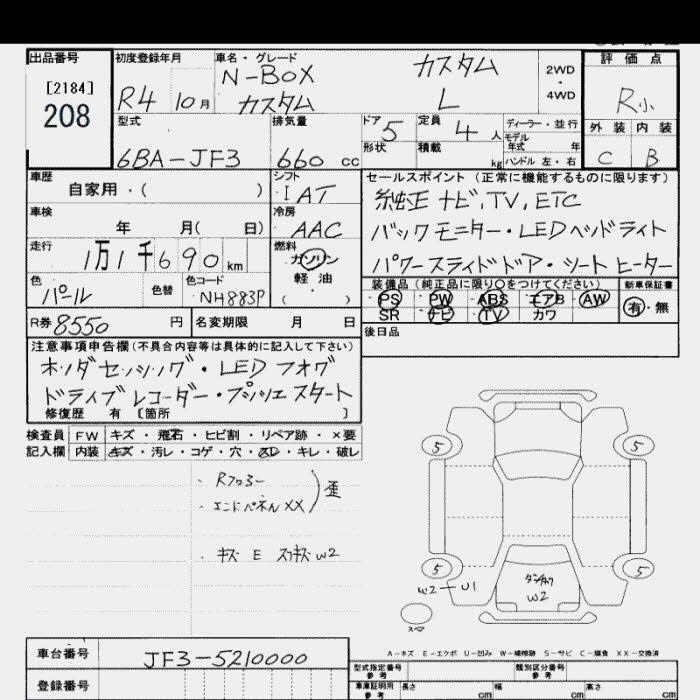 出品番号
[2184]
208
初度登録年月
R4 10月
車名・グレード
N-BOX カスタム
カスタム L
2WD
・
4WD
評価点
R小
外装 内装
C B
型式
6BA-JF3
排気量
660 cc
ドア 5
形状
定員 4 人
積載 kg
ディーラー・並行
モデル年式 年
ハンドル 左・右
車歴
自家用・( )
シフト
IAT
車検
年 月( 日)
冷房
AAC
走行
1万1千690 km
燃料
ガソリン
軽油
( )
色
パール
色替
色コード
NH883P
R券 8550 円
名変期限 月 日
セールスポイント(正常に機能するものに限ります)
純正ナビ,TV,ETC
バックモニター・LEDヘッドライト
パワースライドドア・シートヒーター
装備品(純正品に限り○をつけてください)
・PS ・PW ・ABS ・エアB ・AW
SR ナビ TV カワ
新車保証書
有・無
後日品
注意事項申告欄(不具合内容等は具体的に記入して下さい)
ホンダセンシング・LEDフォグ
ドライブレコーダー・プッシュスタート
修復歴 有 [箇所 ]
検査員 FW キズ・飛石・ヒビ割・リペア跡・×要
記入欄 内装 キズ・汚レ・コゲ・穴・スレ・キレ・破レ
・Rフロアー
・エンドパネルXX 歪
・キズ E スリキズW2
5
5
5
5
W2 U1
W2
スペア
A-キズ E-エクボ U-凹み W-補修跡 S-サビ C-腐食 XX-交換済
車台番号
JF3-5210000
登録番号
型式指定番号
参考
類別区分番号
参考
車庫証明用
参考
長さ cm
幅 cm
高さ cm